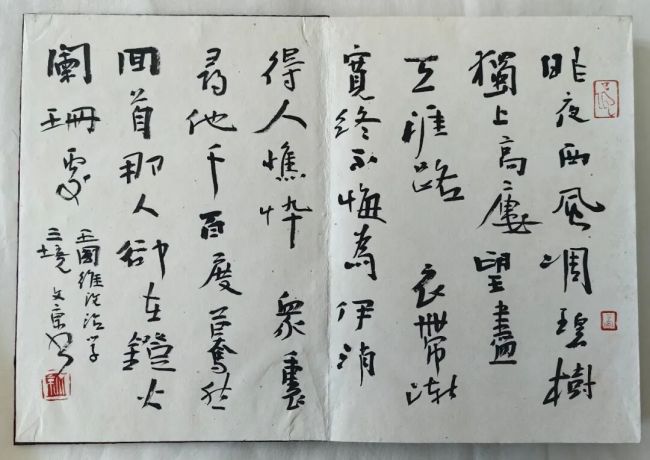 昨夜西風凋碧樹
獨上高樓望盡
天涯路 衣帶漸
寬終不悔為伊消
得人憔悴 衆裏
尋他千百度驀然
回首那人卻在鐙火
闌珊處
王國維治学
三境